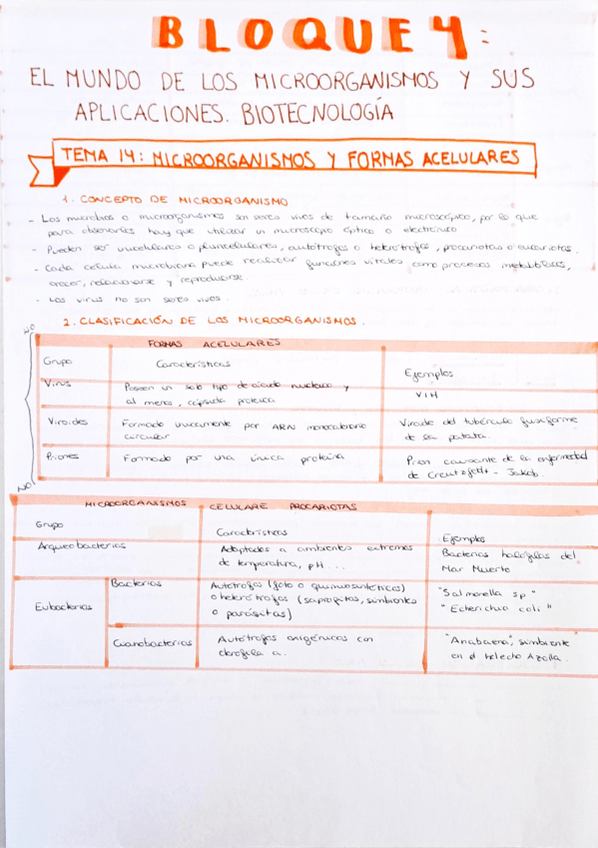 BLOQUE 4:
EL MUNDO DE LOS MICROORGANISMOS Y SUS
APLICACIONES. BIOTECNOLOGÍA
TEMA 14: MICROORGANISMOS Y FORMAS ACELULARES
1. CONCEPTO DE MICROORGANISMO
- Los microbios o microorganismos son seres vivos de tamaño microscópico, por lo que
para observarlos hay que utilizar un microscopio óptico o electrónico
- Pueden ser unicelulares o pluricelulares, autótrofos o heterótrofos, procariotas o eucariotas.
- Cada célula microbiana puede realizar funciones vitales como procesos metabólicos,
crecer, relacionarse y reproducirse.
- Los virus no son seres vivos.
2. CLASIFICACIÓN DE LOS MICROORGANISMOS.
NO
FORMAS ACELULARES
Grupo Características Ejemplos
Virus Poseen un solo tipo de ácido nucleico y VIH
al menos, cápsula proteica
Viroides Formado unicamente por ARN monocatenario Viroide del tubérculo fusiforme
circular de la patata.
Priones Formado por una única proteína Prion causante de la enfermedad
de Creutzfeldt - Jakob.
NO
MICROORGANISMOS CELULARE PROCARIOTAS
Grupo Características Ejemplos
Arqueobacterias Adaptadas a ambientes extremos Bacterias halófilas del
de temperatura, pH... Mar Muerto
Eubacterias Bacterias Autótrofas (foto o quimiosintéticos) "Salmonella sp"
o heterótrofas (saprófitas, simbiontes "Echerichia coli"
o parásitas)
Cianobacterias Autótrofas oxigénicas con "Anabaena", simbionte
clorofila a. en el helecho Azolla.